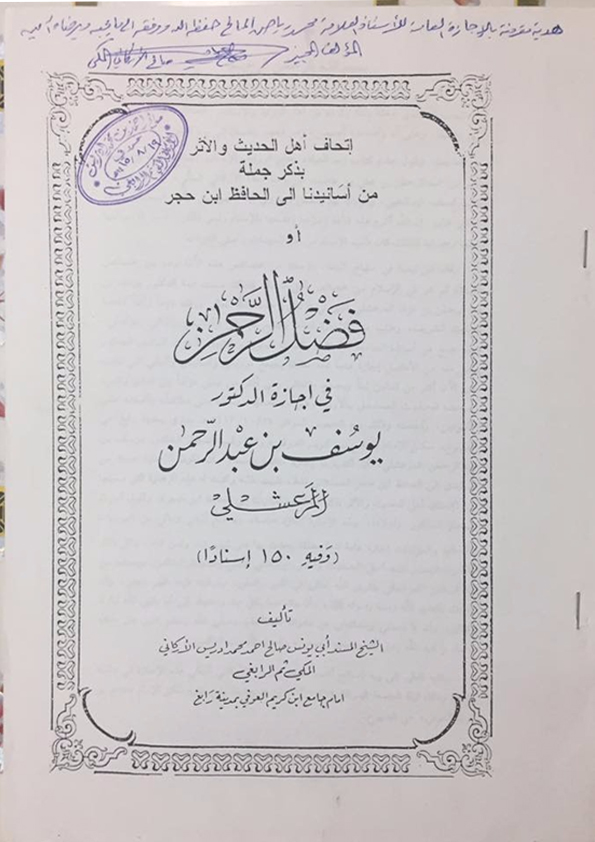 هدية مقرونة بالإجازة العامة للأستاذ العلامة محمد رياض المالح حفظه الله ووفقه إلى ما يحبه ويرضاه آمين
المؤلف المجيز صالح الأركاني المكي
إتحاف أهل الحديث والأثر
بذكر جملة
من أسانيدنا الى الحافظ ابن حجر
أو
فَضْلُ الرَّحْمٰن
في اجازة الدكتور
يوسُف بن عَبدالرّحمٰن
المَرعَشلي
(وَفيهِ ١٥٠ إسنادًا)
تأليف
الشيخ المسند أبي يونس صالح احمد محمد ادريس الأركاني
المكي ثم الرابغي
امام جامع ابن كريم العوفي بمدينة رَابغ